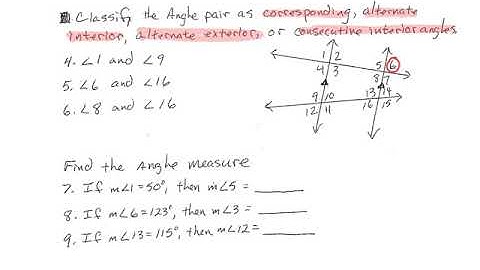 Classify the Anghe pair as corresponding, alternate
interior, alternate exterior, or consecutive interior angles
4. ∠1 and ∠9
5. ∠6 and ∠16
6. ∠8 and ∠16
1 2
4 3
5 6
8 7
9 10
12 11
13 14
16 15
Find the Anghe measure
7. If m∠1=50°, then m∠5 = ______
8. If m∠6=123°, then m∠3 = ______
9. If m∠13=115°, then m∠12= ______